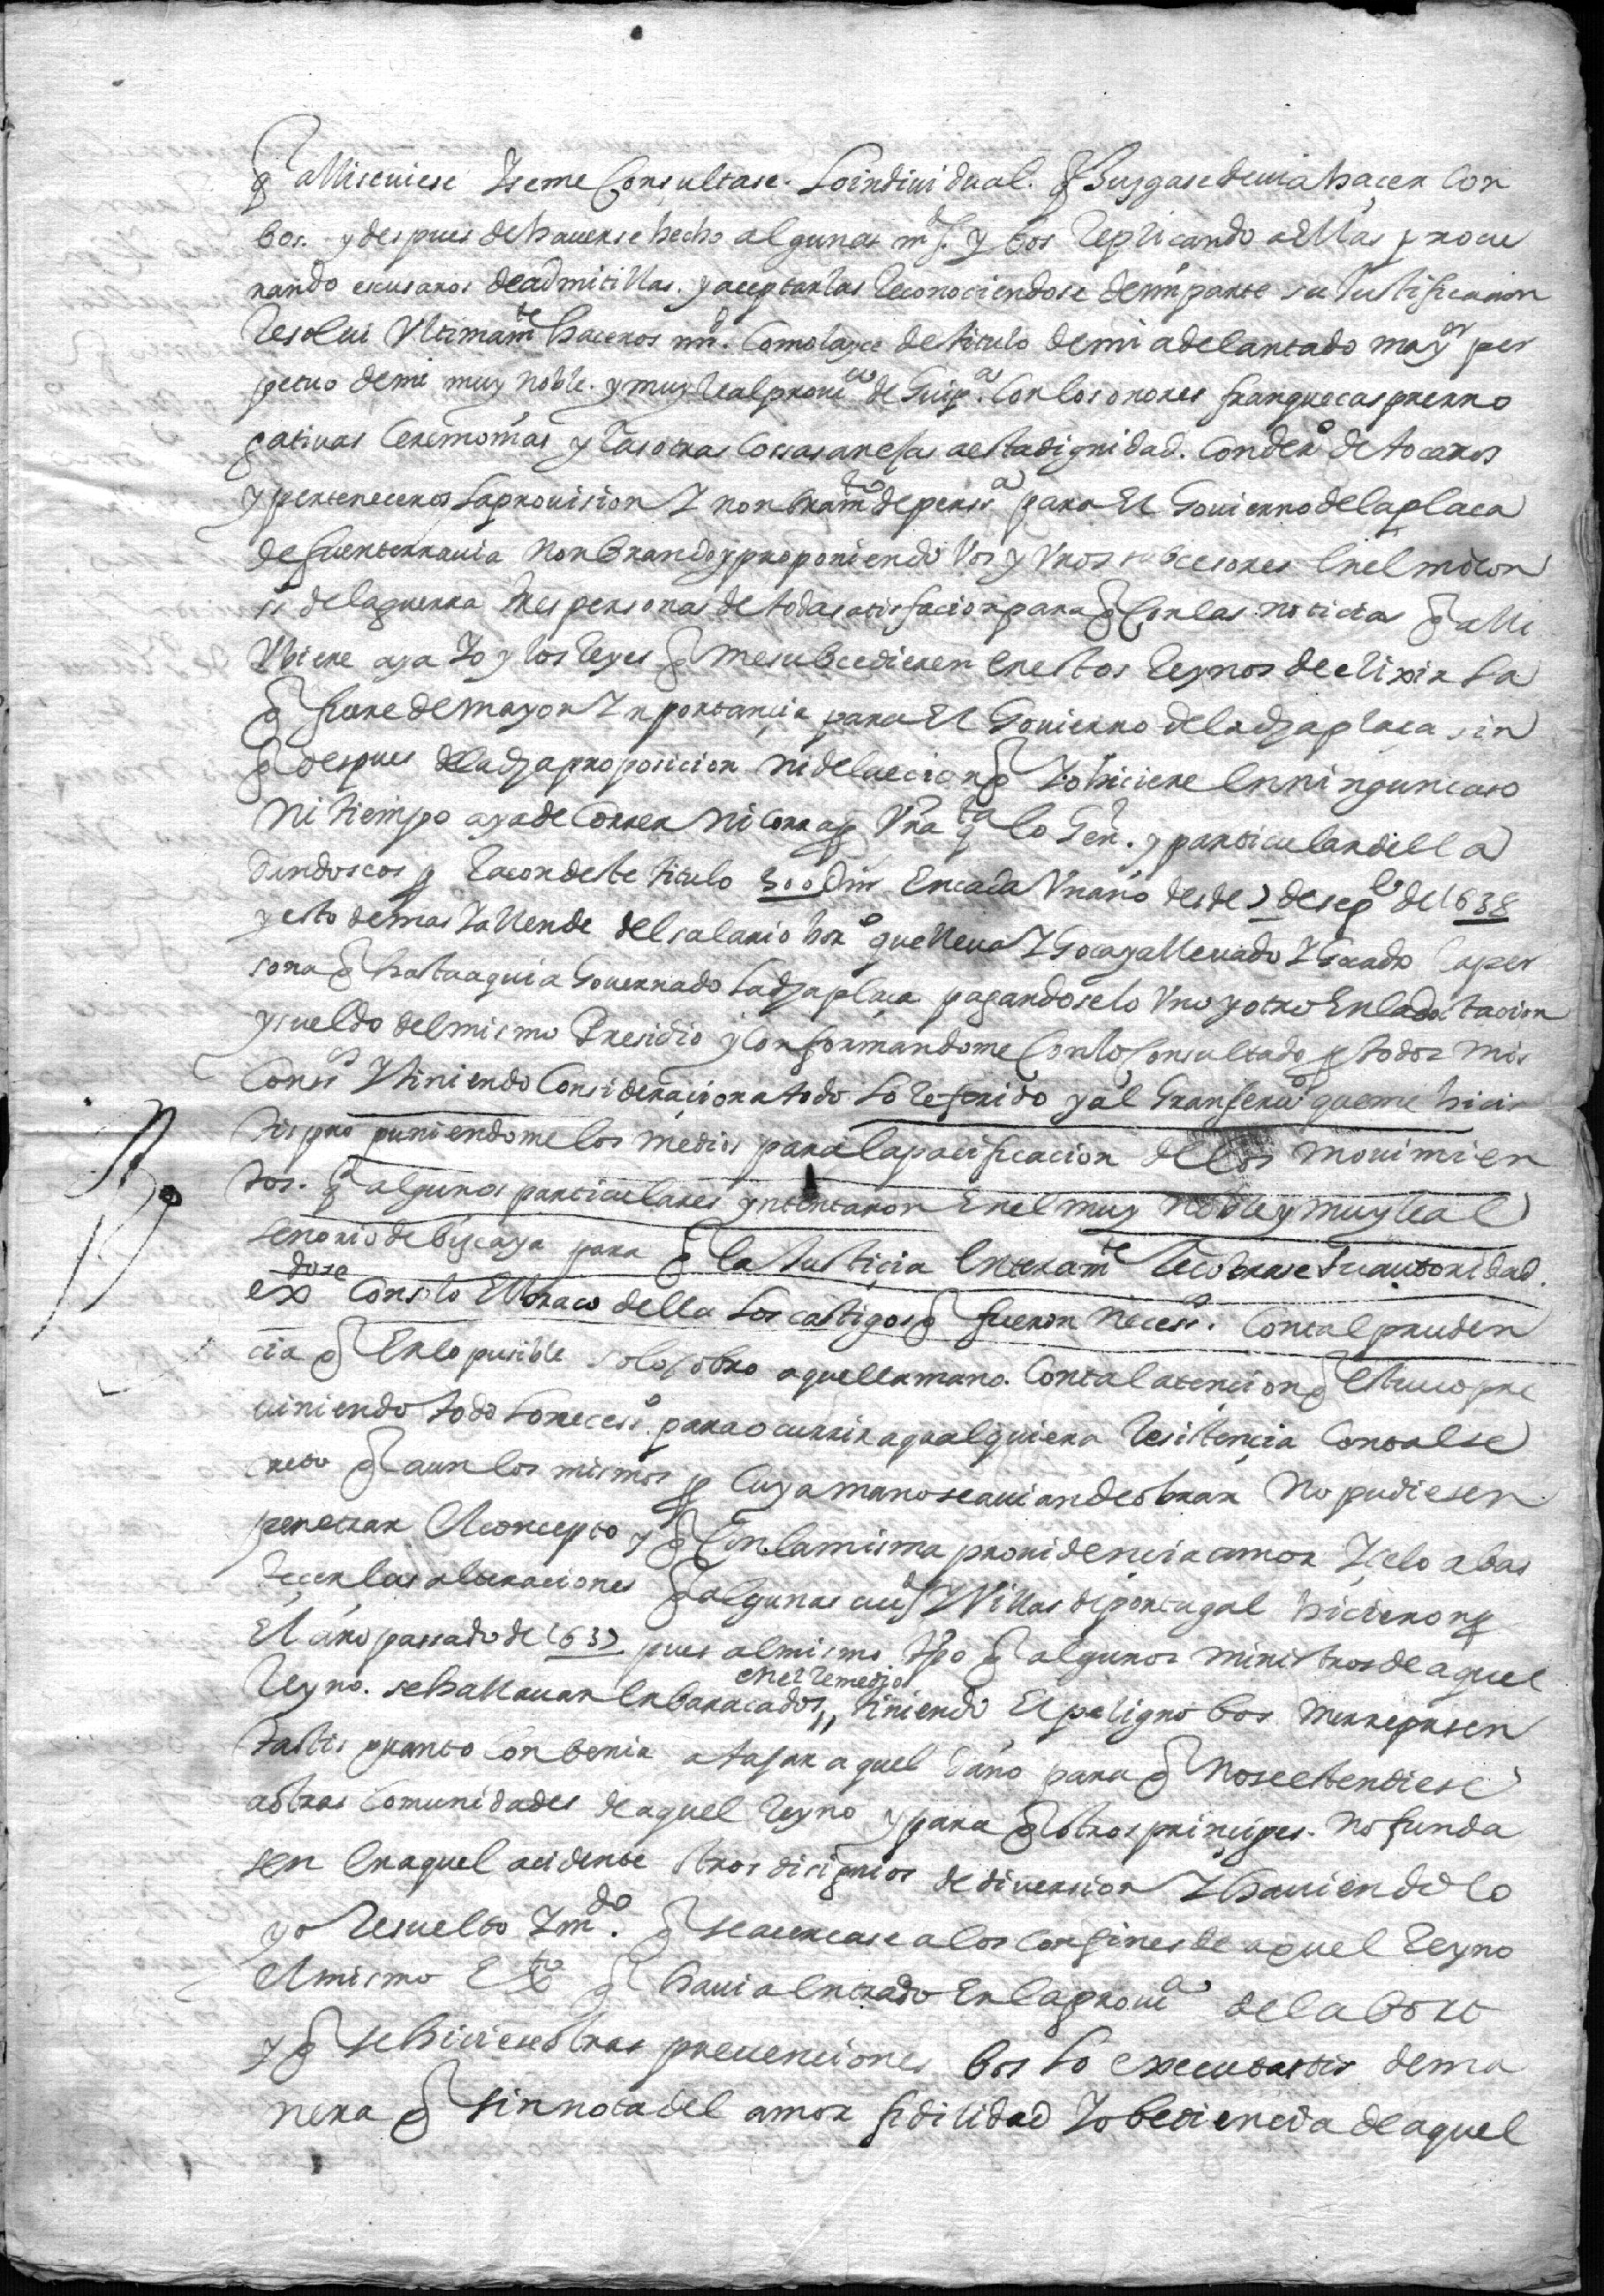 q̃ alli se viese I se me Consultase. Lo indiuidual. q̃ Juzgase deuia hacer Con
bos. y despues de hauerse hecho algunas mds. y bos Replicando a ellas procu
rando escusaros de admitillas. y aceptarlas Reconociendose de mi parte su Justificacion
Resolui Vltimamte haceros md. Como la hice de titulo de mi adelantado mayor per
petuo de mi muy noble. y muy leal prouia de Guipa. Con los onores franquecas prerro
gatiuas Ceremonias y las otras Cossas anejas a esta dignidad. Con dero de tocaros
y perteneceros La prouision I nonbramto de persa para El Gouierno de la placa
de fuenterrauia Nonbrando y proponiendo Vos y Vros subcesores En el mi con
so de la guerra tres personas de toda satisfacion para q̃ Con las noticias q̃ alli
Vbiere aya Yo y los Reyes q̃ me subcedieren En estos Reynos de elixir La
q̃ fuere de mayor Inportancia para El Gouierno de la dha placa sin
q̃ despues de la dha proposicion ni de la eleccion q̃ Yo hiciere En ningun caso
Ni tiempo aya de Correr ni Corra por Vra qta lo Gen. y particular della
Dandoseos por Racon deste titulo 300 Dm En cada Vn año desde 7 de sepe de 1638
y esto demas I allende del salario horo que lleua I Goca y a lleuado I Gocado La per
sona q̃ hasta aqui a Gouernado La dha placa pagandoselo Vno y otro En la dotacion
y sueldo del mismo Presidio y Conformandome Con lo Consultado por todos mis
Consos I tiniendo Consideracion a todo Lo referido y al Gran seruo que me hicis
tis proponiendome los medios para la pacificacion de los mouimien
tos. q̃ algunos particulares yntentaron En el muy noble y muy leal
señorio de bizcaya para q̃ la Justicia Enteramte Recobrase Su autoridad.
exdose Con solo El braco della Los castigos q̃ fueron necesos. Con tal pruden
cia q̃ En lo pusible solo obro aquella mano. Con tal atencion q̃ estuuo pre
uiniendo todo Lo neceso. para ocurrir a qualquiera Resistencia Con tal se
creto q̃ aun los mismos por Cuya mano se auian de obrar No pudiesen
penetrar El concepto y q̃ Con la misma prouidencia amor I celo a bas
tecer las alteraciones q̃ algunas ciuds I Villas de portugal hicieron por
El año passado de 1637 pues al mismo tpo q̃ algunos ministros de aquel
Reyno. se hallauan Enbaracados en el remedio tiniendo El peligro bos me repressen
tastis quanto Conbenia atajar aquel daño para q̃ No se estendiese
a otras Comunidades de aquel Reyno y para q̃ otros principes. No funda
sen En aquel acidente otros disignios de diuersion I hauiendolo
yo Resuelto I mdo. q̃ se acercase a los Confines de aquel Reyno
El mismo Exto q̃ hauia Entrado En la prouia de labort
y q̃ se hiciesen otras preuenciones bos Lo executastis de ma
nera q̃ sin nota del amor fidilidad I obediencia de aquel